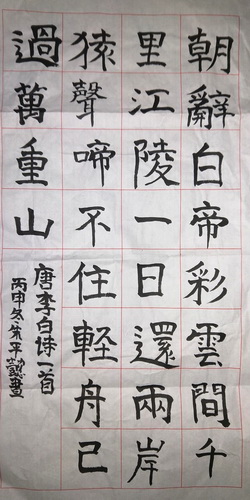 朝辭白帝彩雲間千
里江陵一日還兩岸
猿聲啼不住軽舟已
過萬重山
唐李白诗一首
丙申冬朱平